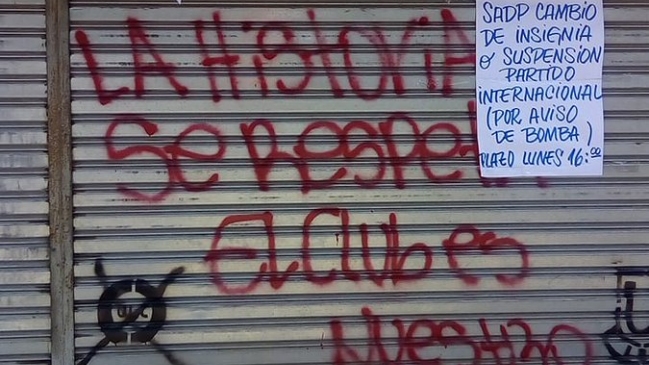 LA HiStoria
Se Respeta
El Club es
Nuestro
SADP CAMBIO
DE INSIGNIA
O' SUSPENSION
PARTIDO
INTERNACIONAL
(POR AVISO
DE BOMBA)
PLAZO LUNES 16:00